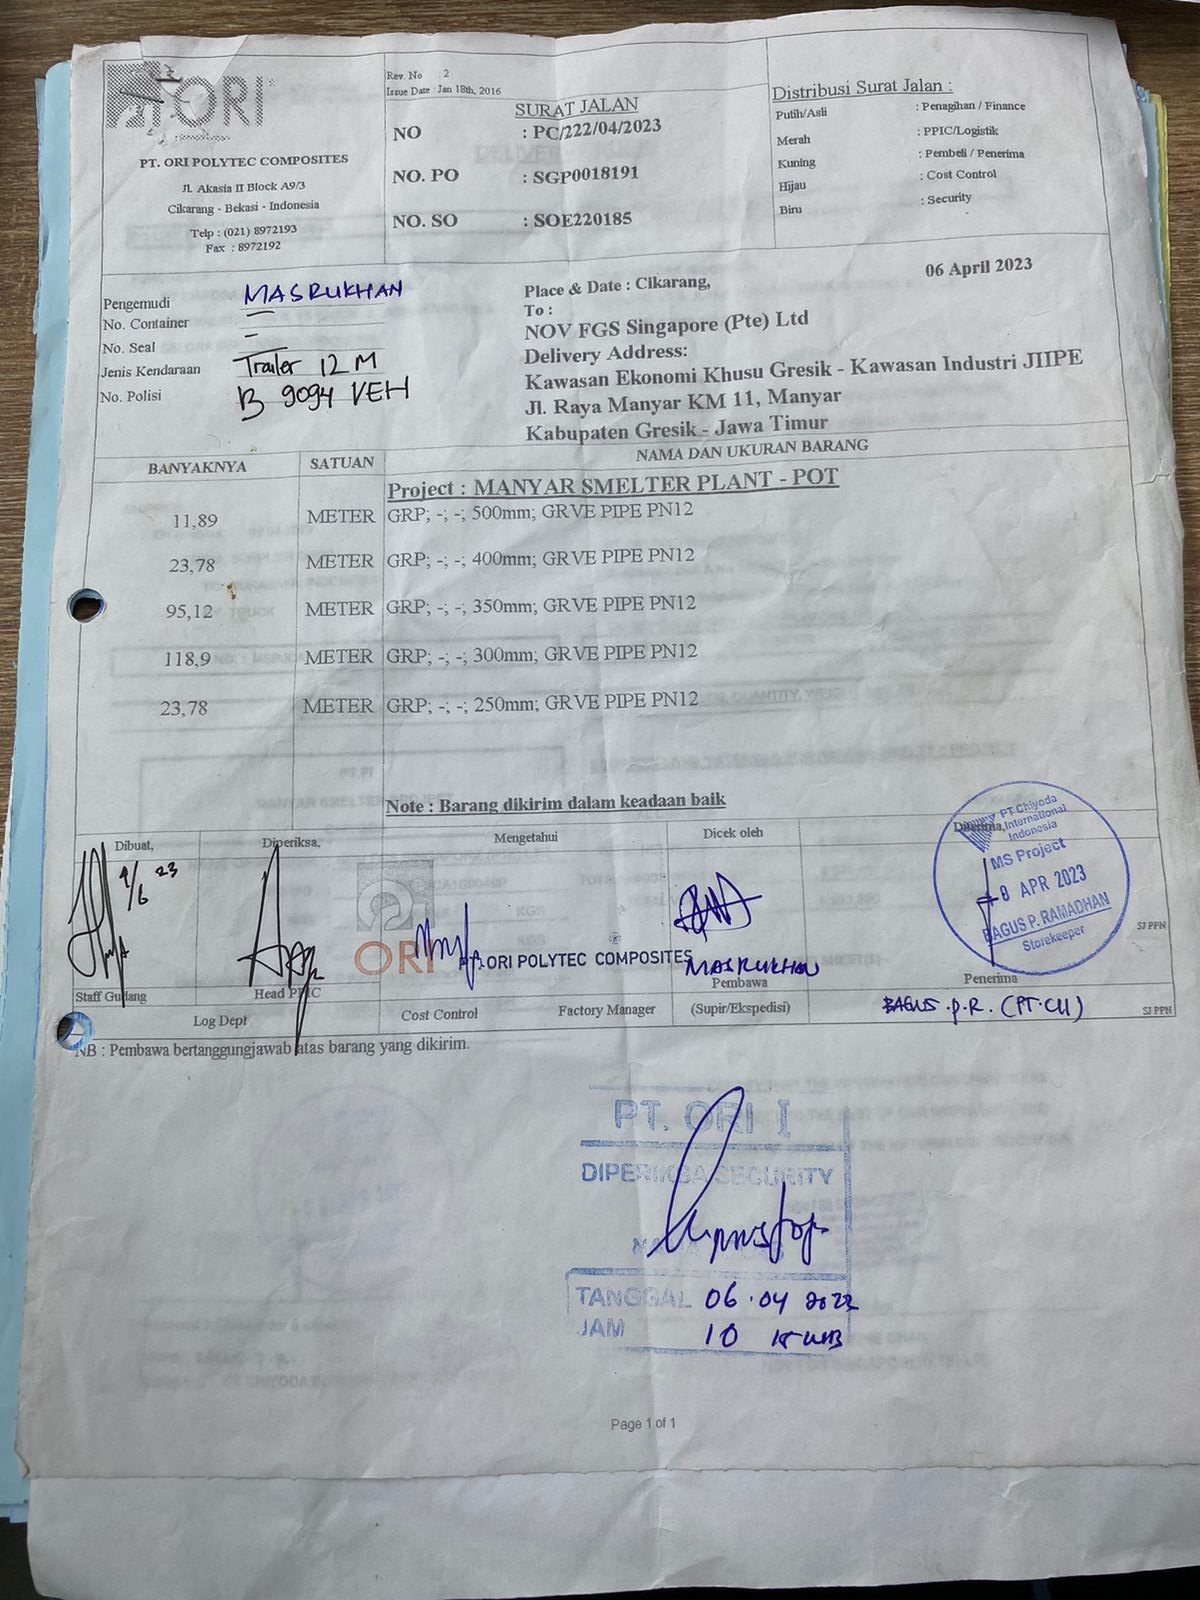 ORI
PT. ORI POLYTEC COMPOSITES
Jl. Akasia II Block A9/3
Cikarang - Bekasi - Indonesia
Telp : (021) 8972193
Fax : 8972192
Rev. No : 2
Issue Date : Jan 18th, 2016
SURAT JALAN
NO : PC/222/04/2023
NO. PO : SGP0018191
NO. SO : SOE220185
Distribusi Surat Jalan :
Putih/Asli : Penagihan / Finance
Merah : PPIC/Logistik
Kuning : Pembeli / Penerima
Hijau : Cost Control
Biru : Security
Pengemudi MASRUKHAN
No. Container -
No. Seal -
Jenis Kendaraan Trailer 12 M
No. Polisi B 9094 VEH
Place & Date : Cikarang, 06 April 2023
To :
NOV FGS Singapore (Pte) Ltd
Delivery Address:
Kawasan Ekonomi Khusu Gresik - Kawasan Industri JIIPE
Jl. Raya Manyar KM 11, Manyar
Kabupaten Gresik - Jawa Timur
BANYAKNYA SATUAN NAMA DAN UKURAN BARANG
Project : MANYAR SMELTER PLANT - POT
11,89 METER GRP; -; -; 500mm; GRVE PIPE PN12
23,78 METER GRP; -; -; 400mm; GRVE PIPE PN12
95,12 METER GRP; -; -; 350mm; GRVE PIPE PN12
118,9 METER GRP; -; -; 300mm; GRVE PIPE PN12
23,78 METER GRP; -; -; 250mm; GRVE PIPE PN12
Note : Barang dikirim dalam keadaan baik
Dibuat, Diperiksa, Mengetahui Dicek oleh Diterima,
PT Chiyoda
International
Indonesia
MS Project
8 APR 2023
BAGUS P. RAMADHAN
Storekeeper
SJ PPN
ORI
PT. ORI POLYTEC COMPOSITES
MASRUKHAN
Staff Gudang Head PPIC Pembawa Penerima
Log Dept Cost Control Factory Manager (Supir/Ekspedisi) BAGUS .P.R. (PT.CII) SJ PPN
NB : Pembawa bertanggungjawab atas barang yang dikirim.
PT. ORI I
DIPERIKSA SECURITY
TANGGAL 06.04 2023
JAM 10
Page 1 of 1